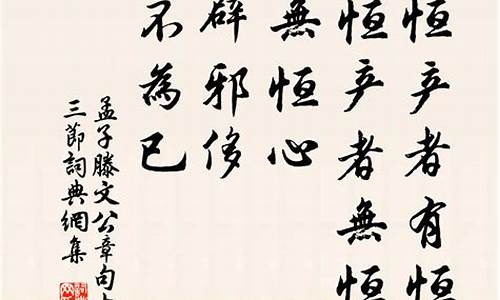 恒产者有恒
恒产者無恒
無恒心
辟邪侈
不為已
孟子滕文公章句上
三節詞典網集